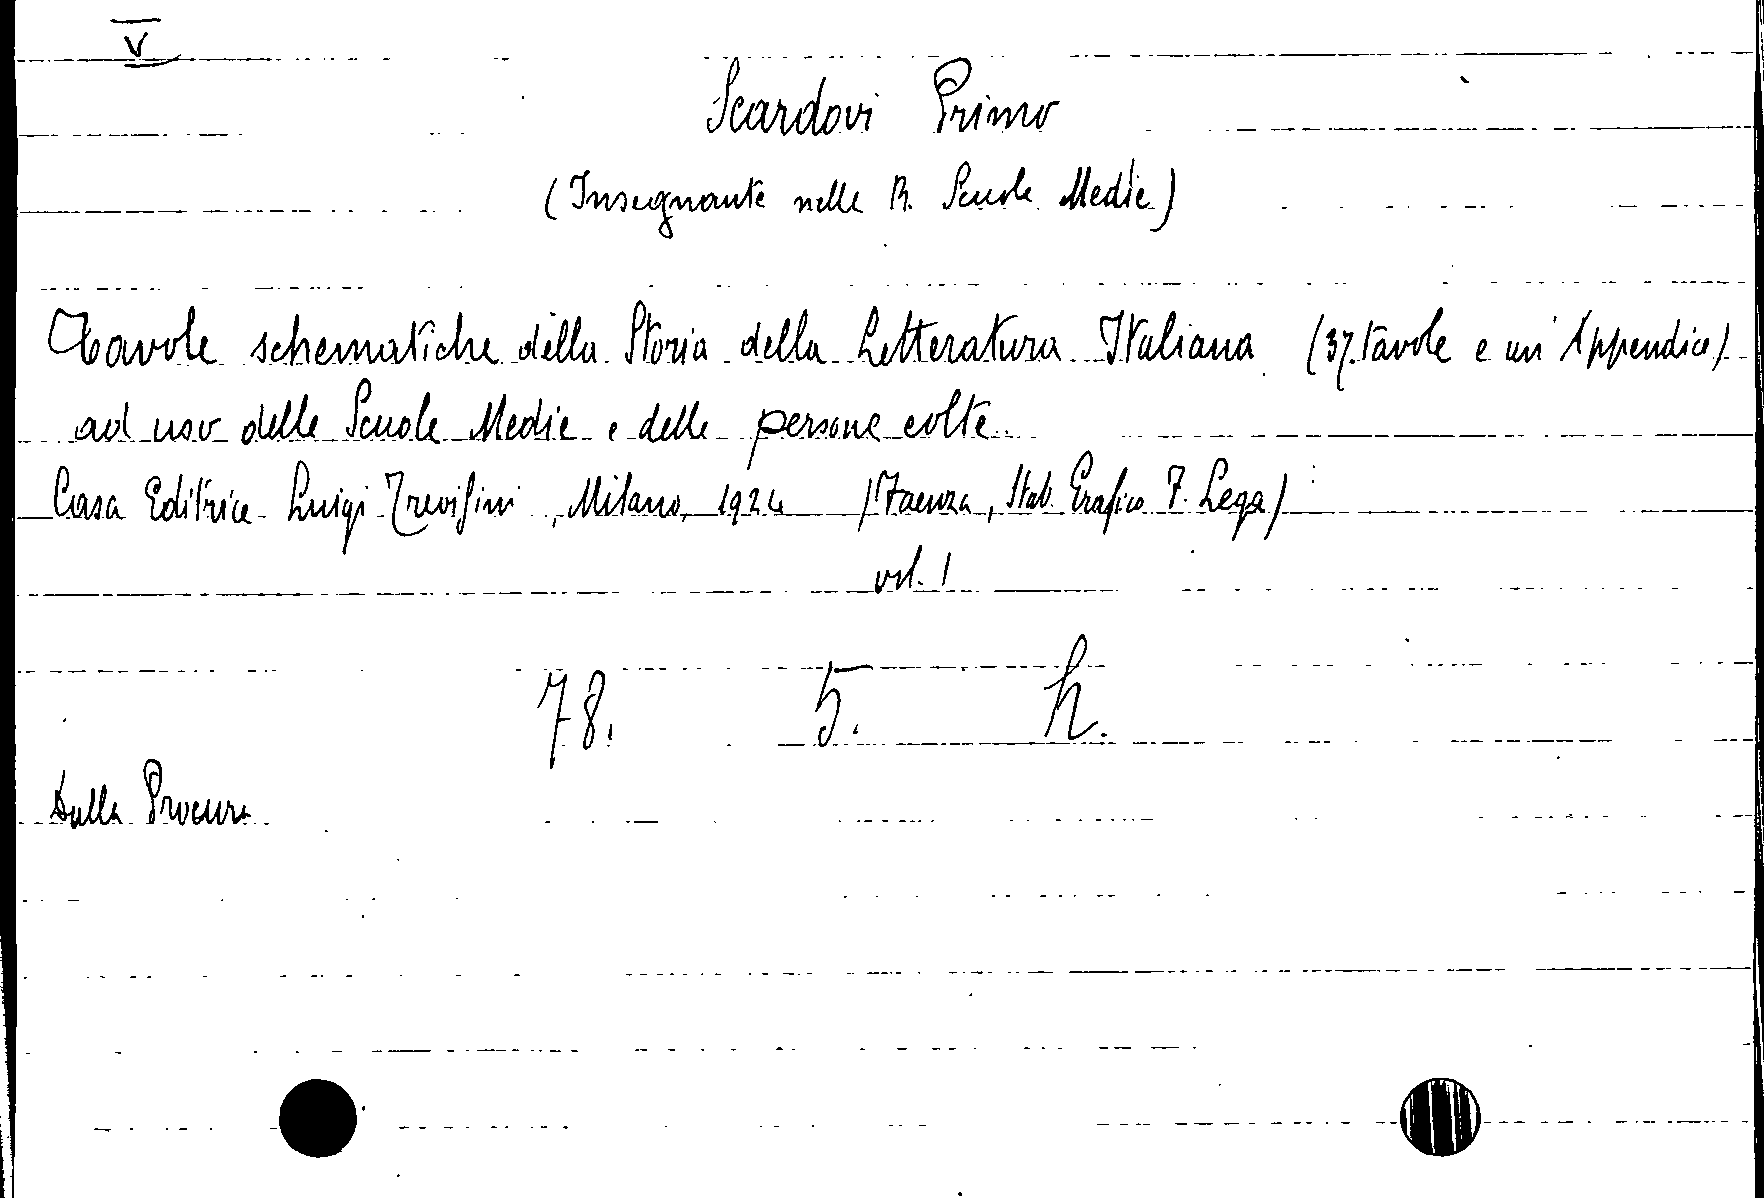 V
Scardovi Primo
(Insegnante nelle R. Scuole Medie)
Tavole schematiche della Storia della Letteratura Italiana (37 tavole e un' Appendice)
ad uso delle Scuole Medie e delle persone colte.
Casa Editrice Luigi Trevisini, Milano, 1924 (Faenza, Stab. Grafico F. Lega)
vol. 1
78. 5. h.
Dalla Procura